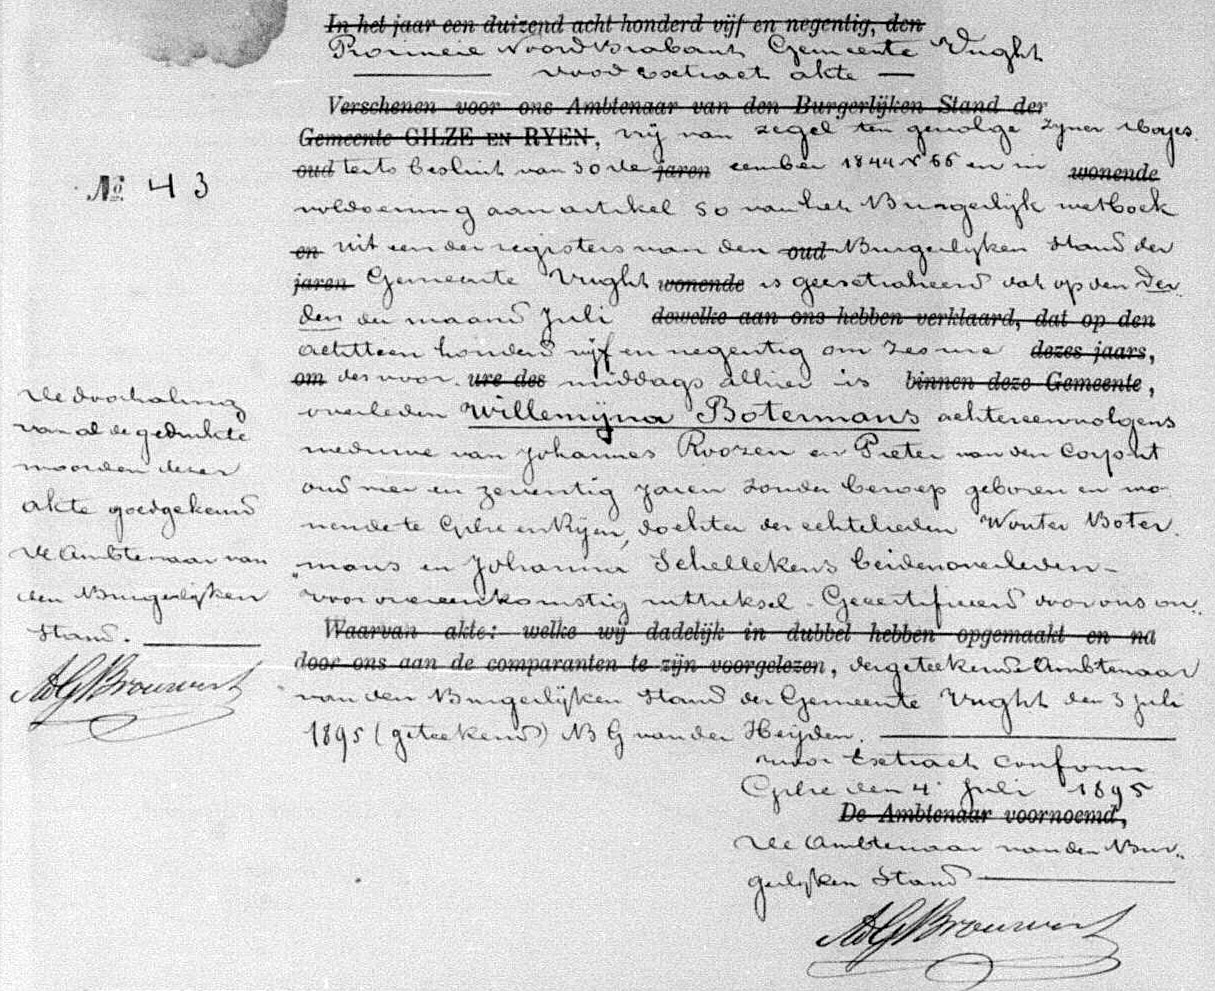 In het jaar een duizend acht honderd vijf en negentig, den
Provincie Noordbrabant Gemeente Vught
dood extract akte
Verschenen voor ons Ambtenaar van den Burgerlijken Stand der
Gemeente GILZE EN RYEN, vrij van zegel ten gevolge Zyner Majes
oud teits besluit van 30 De jaren cember 1844 N 66 en in wonende
voldoening aan artikel 50 van het Burgerlijk wetboek
en uit een der registers van den oud Burgerlijken Stand der
jaren Gemeente Vught wonende is geextraheerd dat op den Der
den der maand Juli dewelke aan ons hebben verklaard, dat op den
achttien honderd vijf en negentig om zes ure dezes jaars,
om des voor ure des middags alhier is binnen deze Gemeente,
overleden Willemijna Botermans achtereenvolgens
weduwe van Johannes Roozen en Pieter van den Corput
oud vier en zeventig jaren zonder beroep geboren en wo
nende te Gilze en Rijen, dochter der echtelieden Wouter Boter
mans en Johanna Schellekens beiden overleden -
voor overeenkomstig uittreksel - Gecertificeerd door ons on
Waarvan akte: welke wij dadelijk in dubbel hebben opgemaakt en na
door ons aan de comparanten te zijn voorgelezen, dergeteekende Ambtenaar
van den Burgerlijken Stand der Gemeente Vught den 3 Juli
1895 (geteekend) N B G van der Heijden.
voor Extract conform
Gilze den 4 Juli 1895
De Ambtenaar voornoemd,
De Ambtenaar van den Bur„
gerlijken Stand
AdGBrouwers
No 43
De doorhaling
van al de gedrukte
woorden dezer
akte goedgekeurd
De Ambtenaar van
den Burgerlijken
Stand.
AdGBrouwers